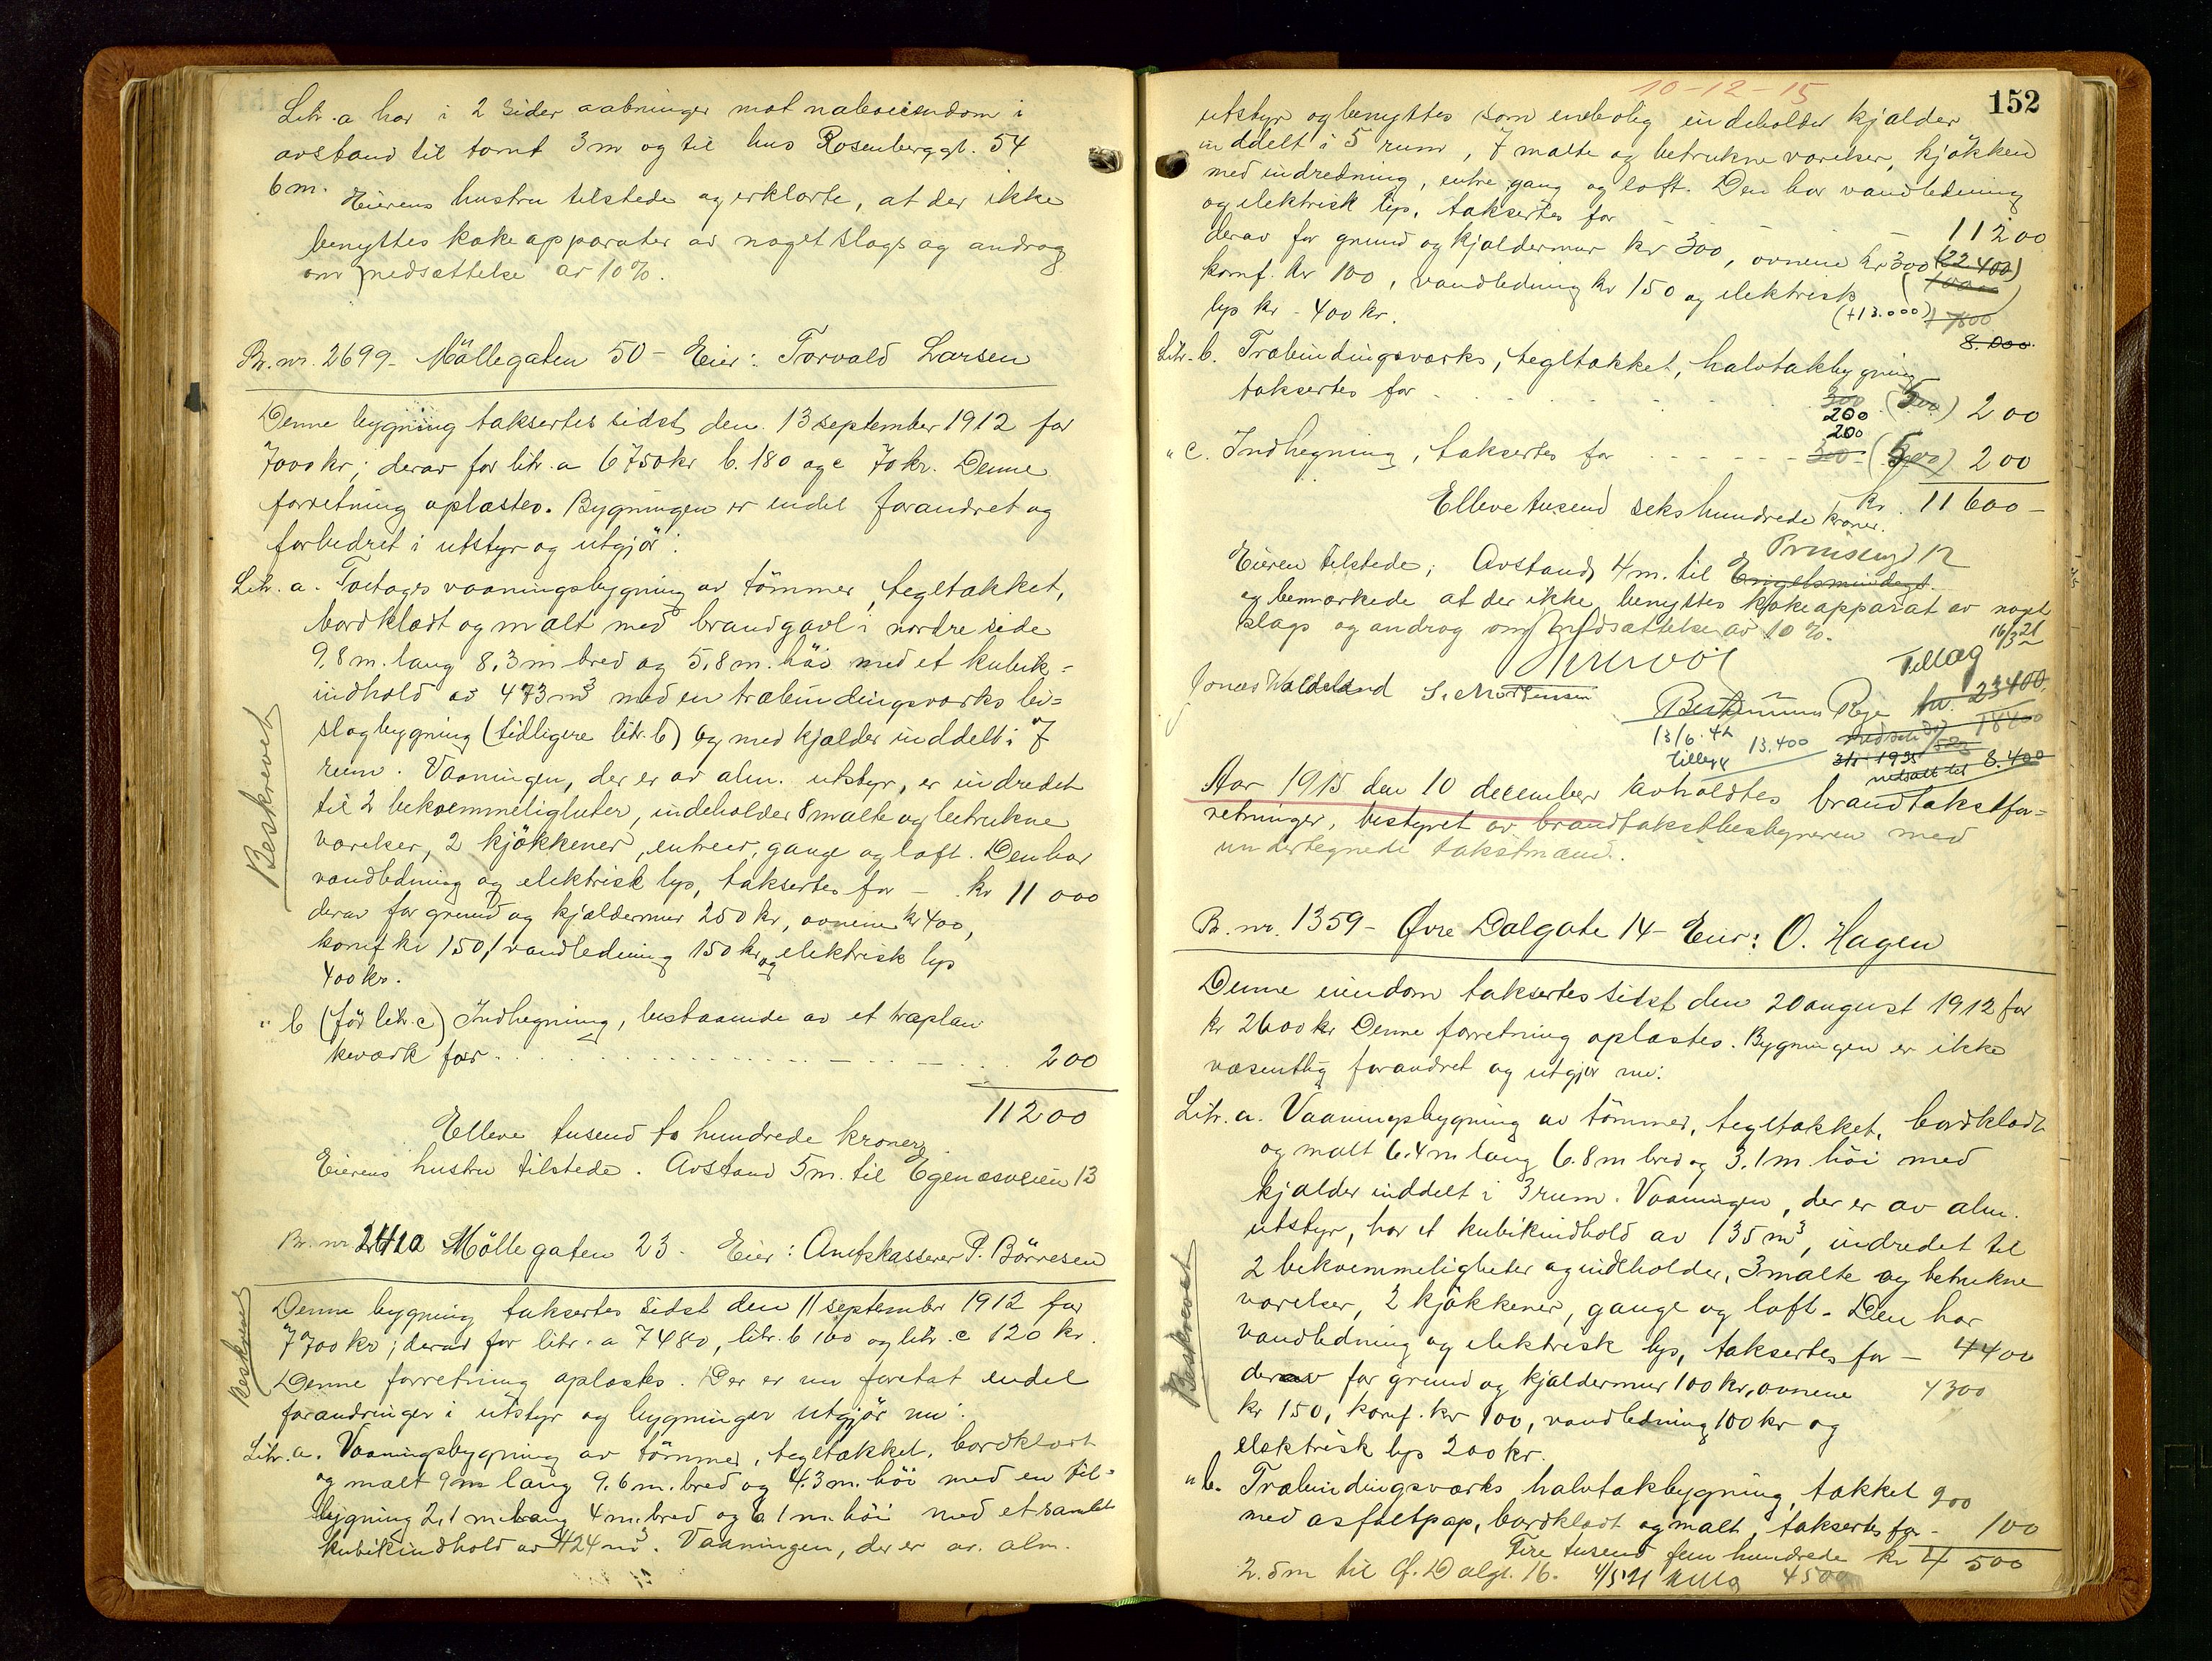 Litr. a har i 2 sider aabninger mot naboeiendom i
avstand til tomt 3 m og til hus Rosenberggt. 54
6 m.
Eierens hustru tilstede og erklærte, at der ikke
benyttes kokeapparater av noget slags og androg
om nedsættelse av 10%.
Br. nr. 2699 - Möllegaten 50 - Eier: Torvald Larsen
Denne bygning taksertes sidst den 13 september 1912 for
7000 kr; derav for litr. a 6750 kr b. 180 og c 70 kr. Denne
forretning oplæstes. Bygningen er endel forandret og
forbedret i utstyr og utgjör:
Litr. a. Toetages vaaningsbygning av tömmer, tegltækket,
bordklædt og malt med brandgavl i nordre side
9,8 m. lang 8,3 m bred og 5,8 m. höi med et kubik-
indhold av 473 m³ med en træbindingsværks bi-
slagbygning (tidligere litr. b) og med kjælder inddelt i 7
rum. Vaaningen, der er av alm. utstyr, er indredet
til 2 bekvemmeligheter, indeholder 8 malte og betrukne
værelser, 2 kjökkener, entreer, gange og loft. Den har
vandledning og elektrisk lys, taksertes for - kr 11 000
derav for grund og kjældermur 250 kr, ovnene kr 400,
komf kr 150, vandledning 150 kr og elektrisk lys
400 kr.
" b (för litr. c) Indhegning, bestaaende av et træplan
keværk for 200
11200
Elleve tusend to hundrede kroner
Eierens hustru tilstede. Avstand 5 m. til Egenæsveien 13
Beskrevet
Br. nr 2410 Möllegaten 23 - Eier: Amtskasserer P. Börresen
Denne bygning taksertes sidst den 11 september 1912 for
7700 kr; derav for litr. a 7480, litr. b 100 og litr. c 120 kr.
Denne forretning oplæstes. Der er nu foretat endel
forandringer i utstyr og bygningen utgjör nu:
Litr. a. Vaaningsbygning av tömmer, tegltækket, bordklædt
og malt 9 m lang 9.6 m. bred og 4.3 m. höi med en til-
bygning 2,1 m. lang 4 m. bred og 6.1 m. höi med et samlet
kubikindhold av 424 m³. Vaaningen, der er av alm.
Beskrevet
10-12-15
152
utstyr og benyttes som enebolig indeholder kjælder
inddelt i 5 rum, 7 malte og betrukne værelser, kjökken
med indredning, entre, gang og loft. Den har vandledning
og elektrisk lys, taksertes for 11200
derav for grund og kjældermur kr 300, ovnene kr 300 (22.400)
komf. kr 100, vandledning kr 150 og elektrisk
lys kr - 400 kr. (+13.000)
8.000
Litr. b. Træbindingsværks, tegltækket, halvtakbygning
taksertes for 300 (500) 200
200
200
" c. Indhegning, taksertes for 300 (500) 200
kr. 11600 -
Elleve tusend sekshundrede kroner.
Prinsensgt 12
Eieren tilstede; Avstand 4 m. til Engelsmindegt
og bemærkede at der ikke benyttes kokeapparat av noget
slags og androg om nedsættelse av 10%.
16/3 21
Tillæg
Jonas Waldeland S. Mortensen
kr. 23400
13/6.42 13.400
Tillegg
1935
nedsatt til 8.400
Aar 1915 den 10 december avholdtes brandtakstfor-
retninger, bestyret av brandtakstbestyreren med
undertegnede takstmænd.
B. nr. 1359 - Øvre Dalgate 14 - Eier: O. Hagen
Denne eiendom taksertes sidst den 20 august 1912 for
kr 2600 kr Denne forretning oplæstes. Bygningen er ikke
væsentlig forandret og utgjør nu:
Litr. a. Vaaningsbygning av tömmer, tegltækket, bordklædt
og malt 6.4 m lang 6.8 m bred og 3.1 m. höi med
kjælder inddelt i 3 rum. Vaaningen, der er av alm.
utstyr, har et kubikindhold av 135 m³, indredet til
2 bekvemmeligheter og indeholder, 3 malte og betrukne
værelser, 2 kjökkener, gange og loft. Den har
vandledning og elektrisk lys, taksertes for - 4400
derav for grund og kjældermur 100 kr, ovnene 4300
kr 150, komf. kr 100, vandledning 100 kr og
elektrisk lys 200 kr.
" b. Træbindingsværks halvtakbygning, tækket 200
med asfaltpap, bordklædt og malt, taksertes for - 100
Fire tusend fem hundrede kr 4 500
2.5 m til Ø. Dalgt. 16. 4500
Beskrevet